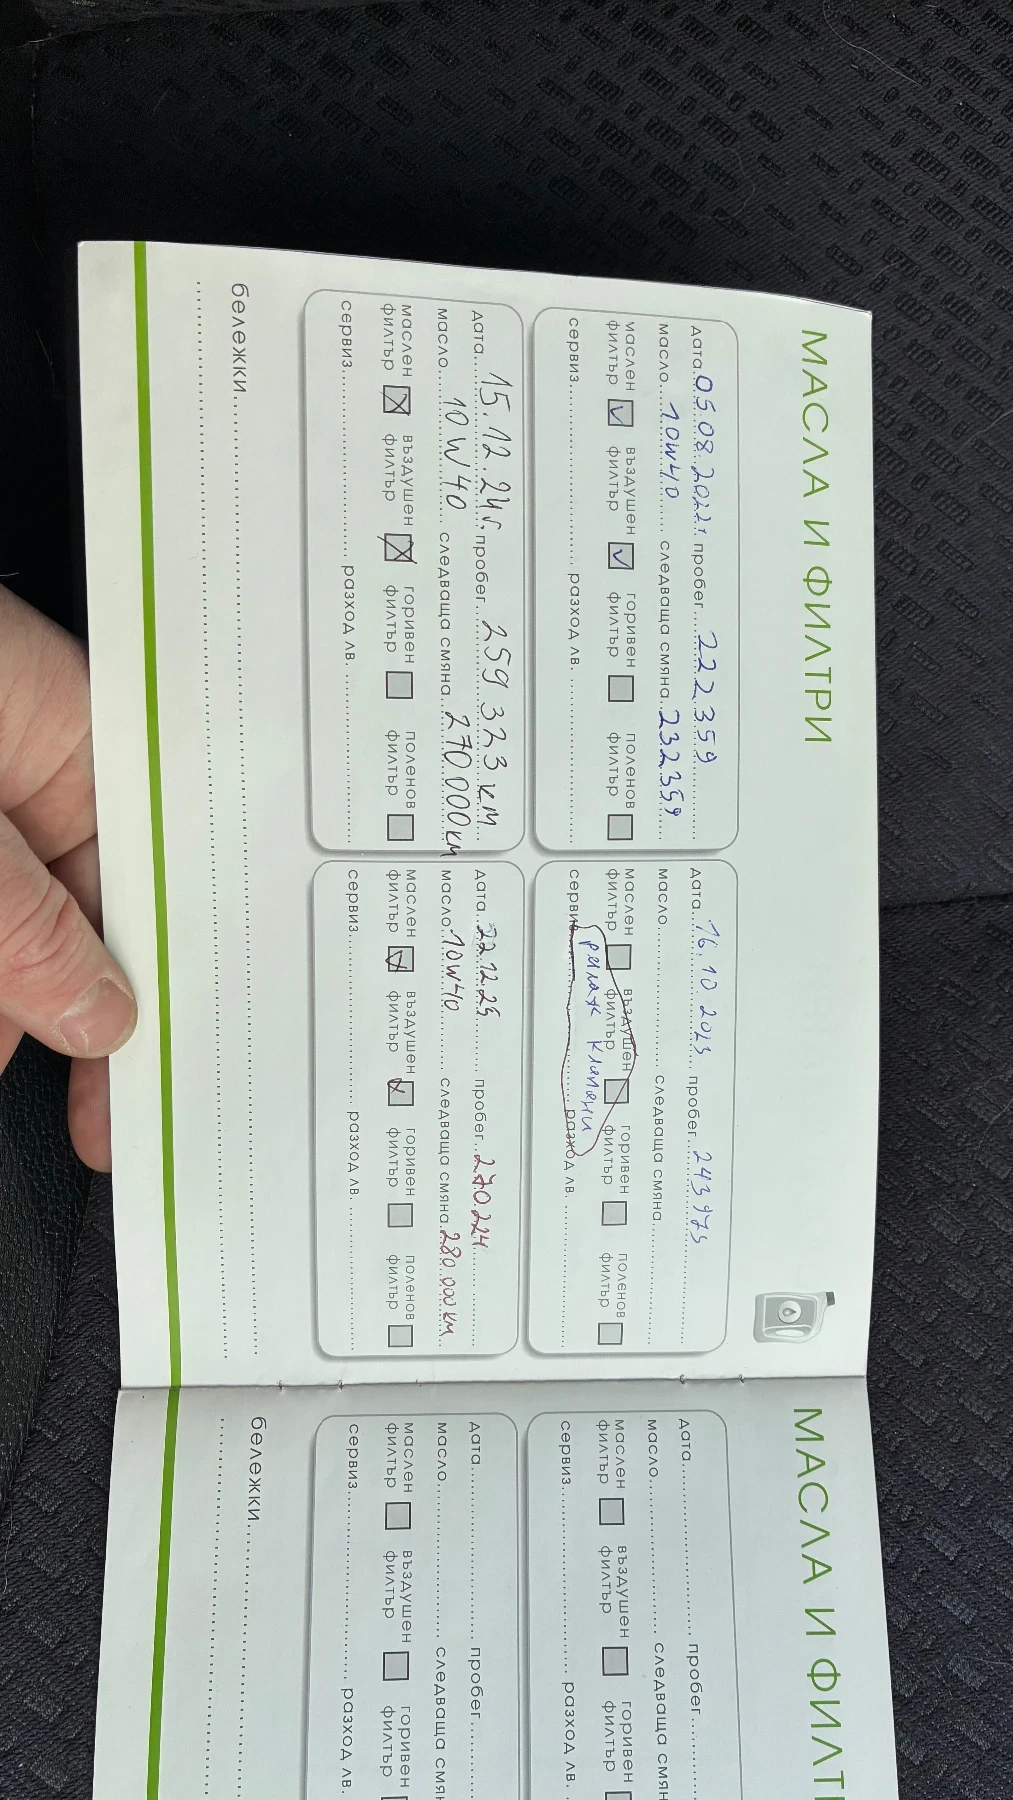 МАСЛА И ФИЛТРИ
дата 05.08.2022г. пробег 222359
масло 10W40 следваща смяна 232359
маслен филтър ☑ въздушен филтър ☑ горивен филтър ☐ поленов филтър ☐
сервиз разход лв.
дата 16.10.2023 пробег 243975
масло следваща смяна
маслен филтър ☐ въздушен филтър ☐ горивен филтър ☐ поленов филтър ☐
релаж клапани
сервиз разход лв.
дата 15.12.24г. пробег 259 323 км
масло 10W40 следваща смяна 270 000 км
маслен филтър ☒ въздушен филтър ☒ горивен филтър ☐ поленов филтър ☐
сервиз разход лв.
дата 22.12.25 пробег 270.224
масло 10W40 следваща смяна 280.000 км
маслен филтър ☑ въздушен филтър ☑ горивен филтър ☐ поленов филтър ☐
сервиз разход лв.
бележки
МАСЛА И ФИЛТ
дата пробег
масло следваща смян
маслен филтър ☐ въздушен филтър ☐ горивен филтър
сервиз разход лв.
дата пробег
масло следваща смян
маслен филтър ☐ въздушен филтър ☐ горивен филтър
сервиз разход лв.
бележки